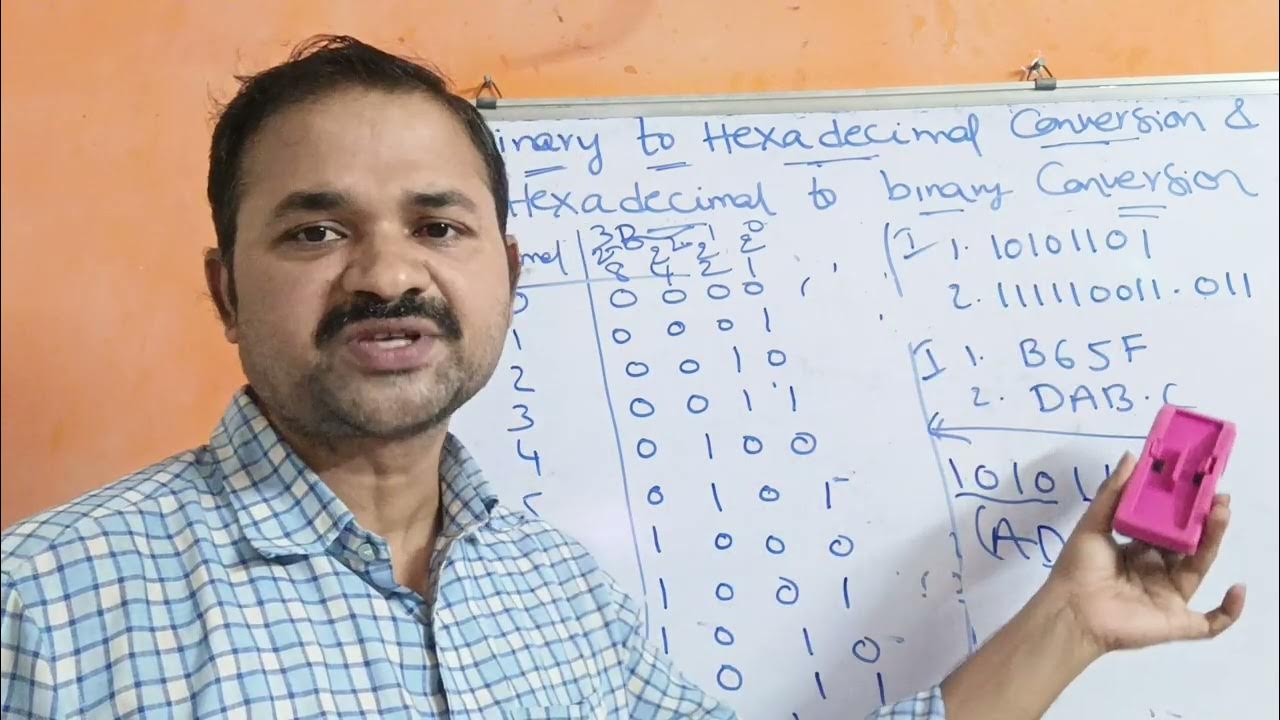 inary to Hexadecimal Conversion &
Hexadecimal to binary Conversion
8 4 2 1
0 0 0 0 0
1 0 0 0 1
2 0 0 1 0
3 0 0 1 1
4 0 1 0 0
0 1 0 1
1 0 0 0
1 0 0 1
1 0 1 0
0 1 1
I 1. 10101101
2. 111110011.011
I 1. B65F
2. DAB.C
10101
(AD